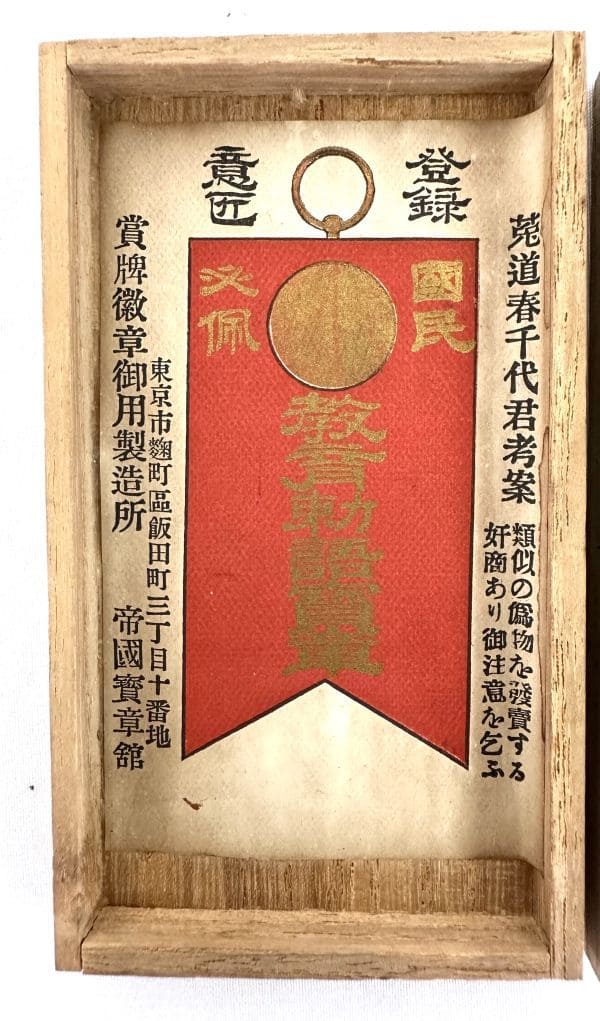 登録
意匠
莵道春千代君考案
類似の僞物を發賣する
奸商あり御注意を乞ふ
國民
必佩
教育勅語寶章
東京市麴町區飯田町三丁目十番地
賞牌徽章御用製造所 帝國寶章舘